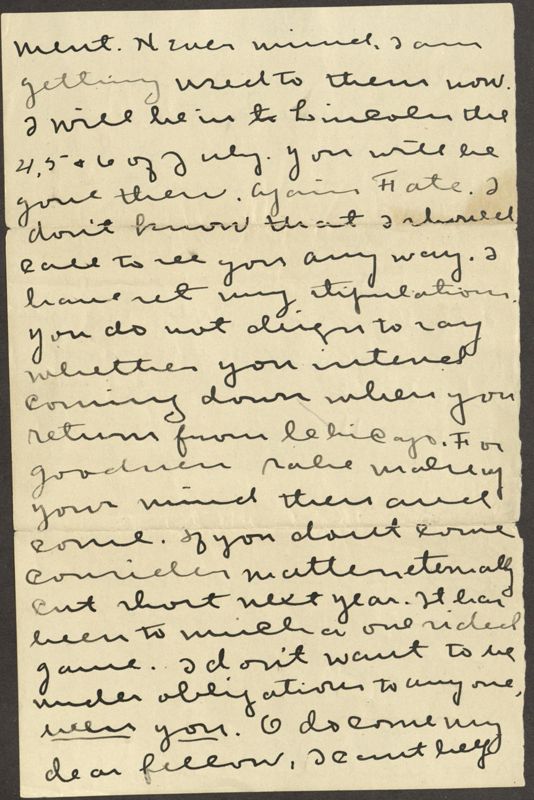 ment. Never mind. I am
getting used to them now.
I will be in to Lincoln the
4, 5 & 6 of July. You will be
gone then. Again Fate. I
don't know that I should
call to see you any way. I
have set my stipulations.
You do not deign to say
whether you intend
coming down when you
return from Chicago. For
goodness sake make up
your mind then and
come. If you don't come
consider matters eternally
cut short next year. It has
been to much a one sided
game. I don't want to be
under obligations to any one,
even you. O do come my
dear fellow, I can't help